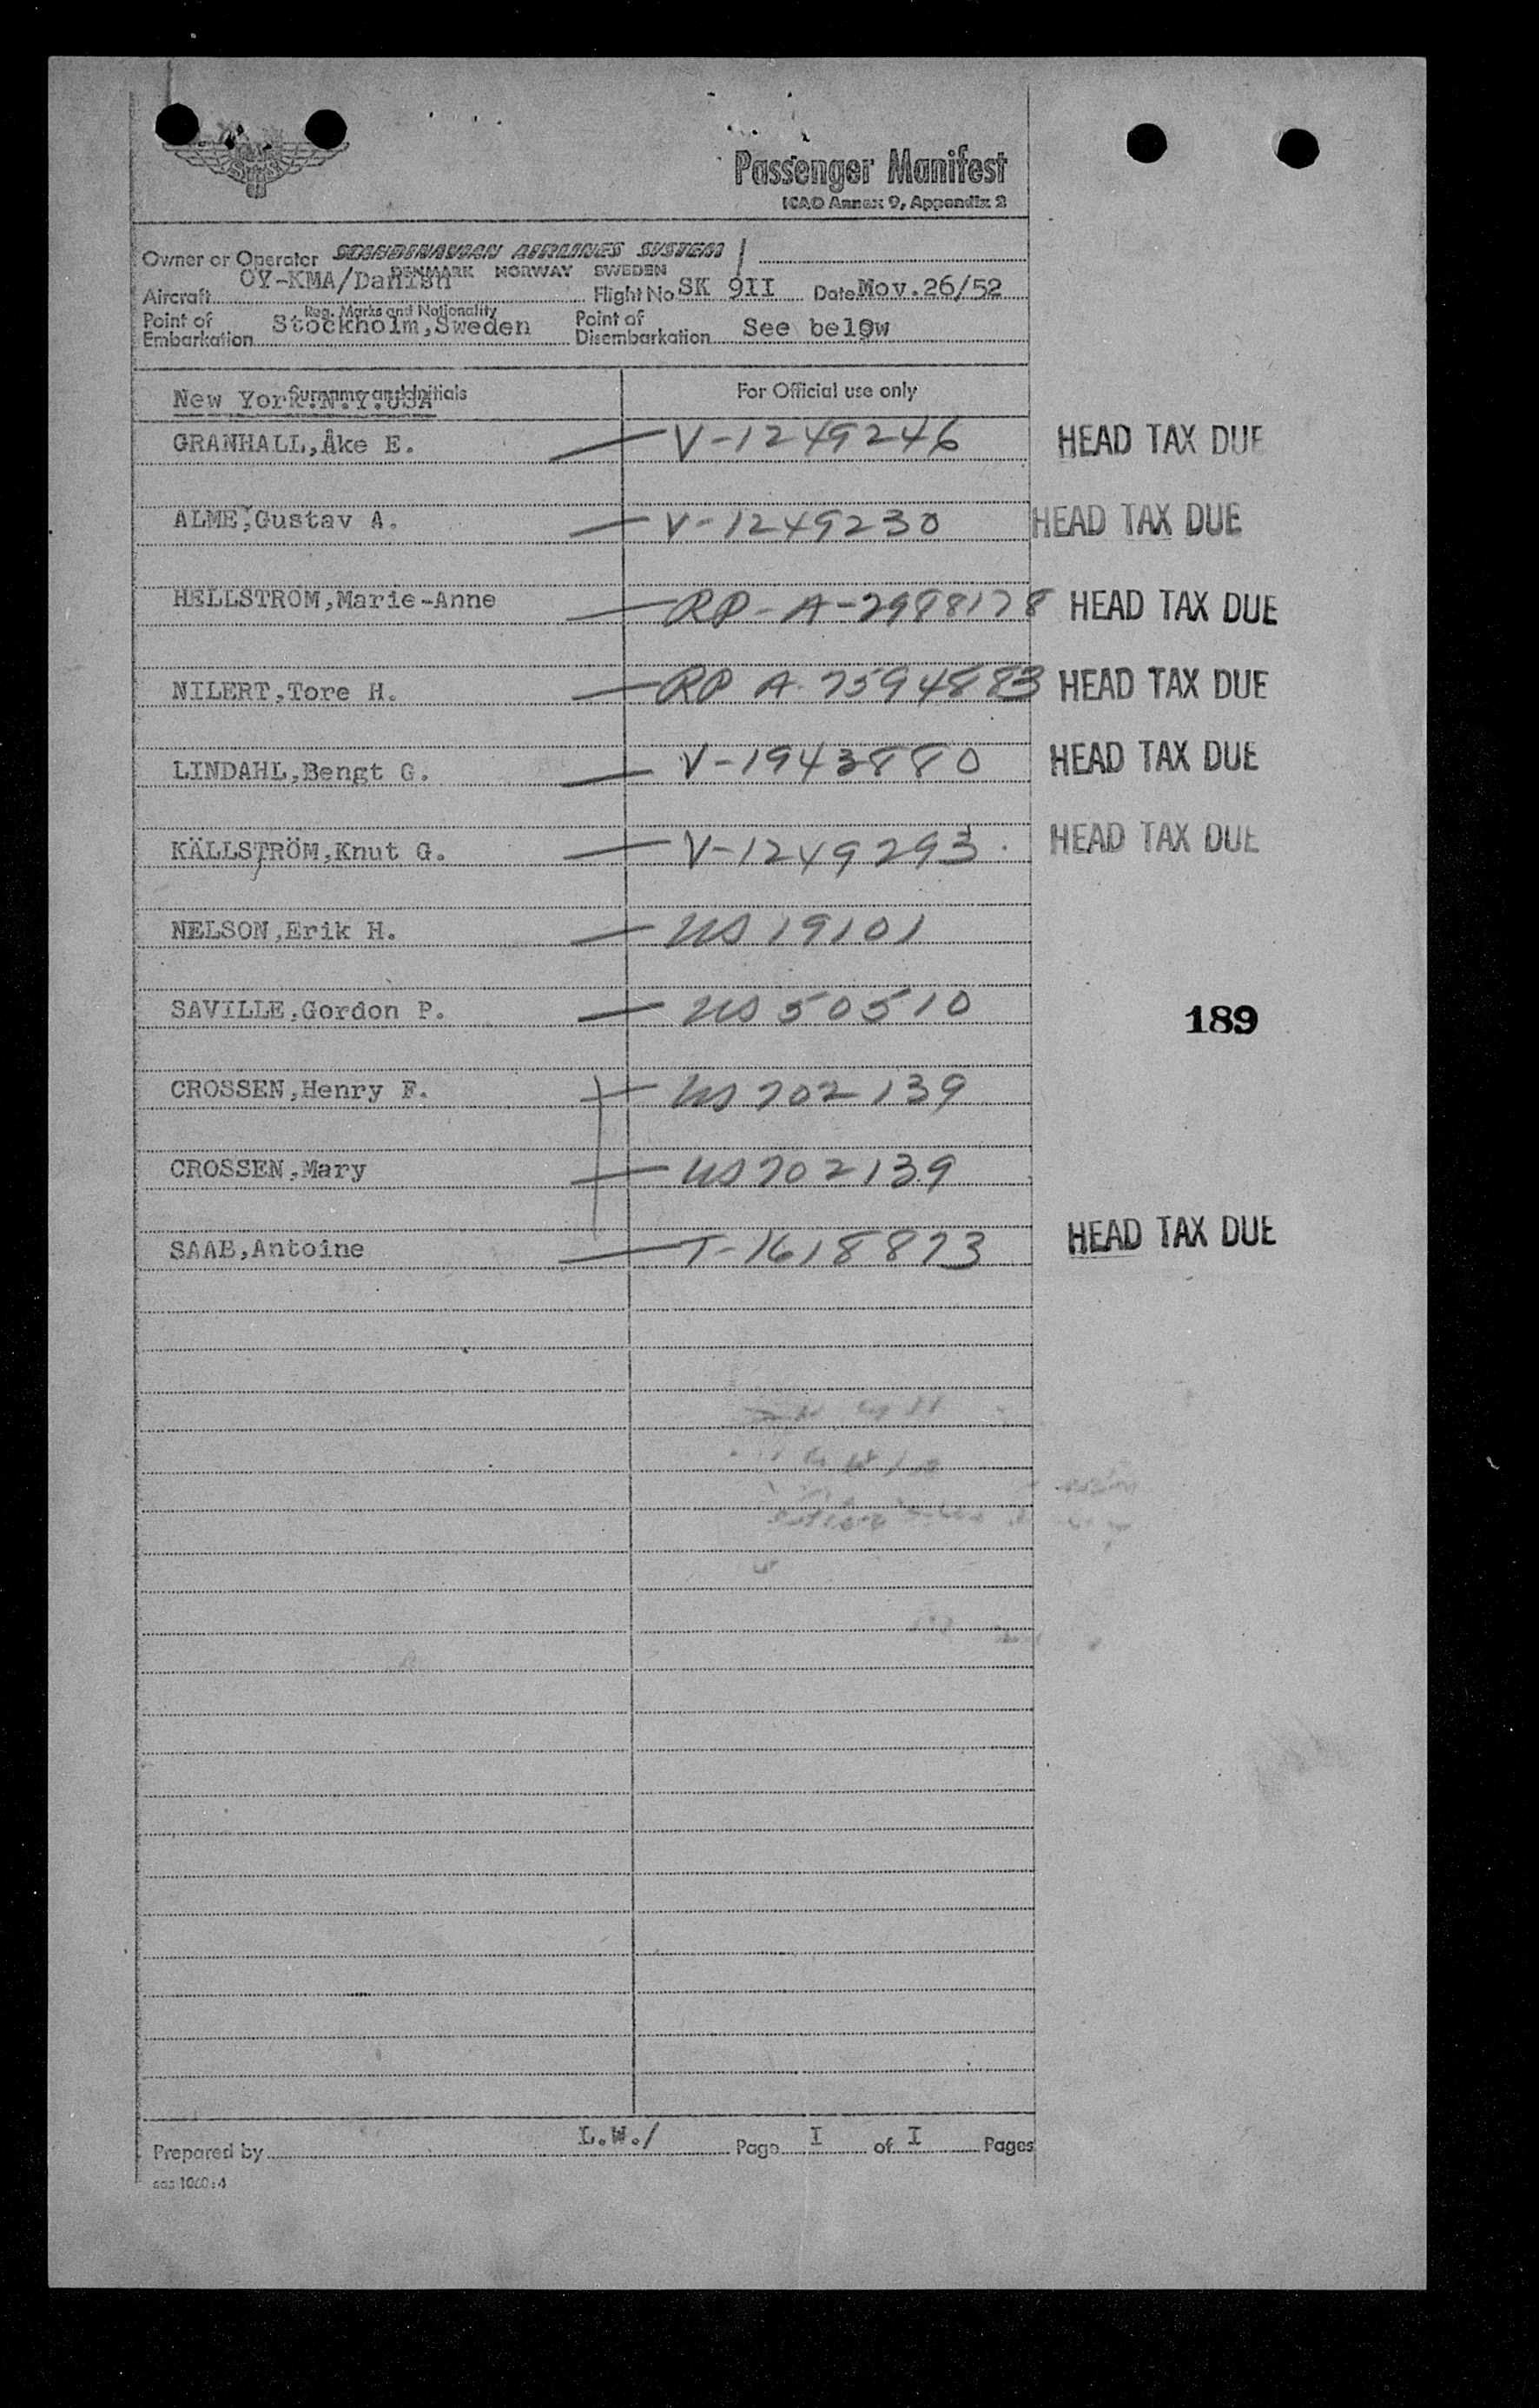 Passenger Manifest
ICAO Annex 9, Appendix 2
Owner or Operator SCANDINAVIAN AIRLINES SYSTEM
DENMARK NORWAY SWEDEN
Aircraft OY-KMA/Danish Flight No SK 9II Date Nov.26/52
Reg. Marks and Nationality
Point of Embarkation Stockholm,Sweden Point of Disembarkation See below
Surname and Initials For Official use only
New York.N.Y.USA
GRANHALL,Åke E. V-1249246 HEAD TAX DUE
ALME,Gustav A. V-1249230 HEAD TAX DUE
HELLSTRÖM,Marie-Anne RP-A-7988178 HEAD TAX DUE
NILERT,Tore H. RP A-7594883 HEAD TAX DUE
LINDAHL,Bengt G. V-1943880 HEAD TAX DUE
KÄLLSTRÖM,Knut G. V-1249293 HEAD TAX DUE
NELSON,Erik H. US 19101
SAVILLE,Gordon P. US 50510
189
CROSSEN,Henry F. US 202139
CROSSEN,Mary US 202139
SAAB,Antoine T-1618873 HEAD TAX DUE
Prepared by L.W./ Page I of I Pages
sas 1060:4